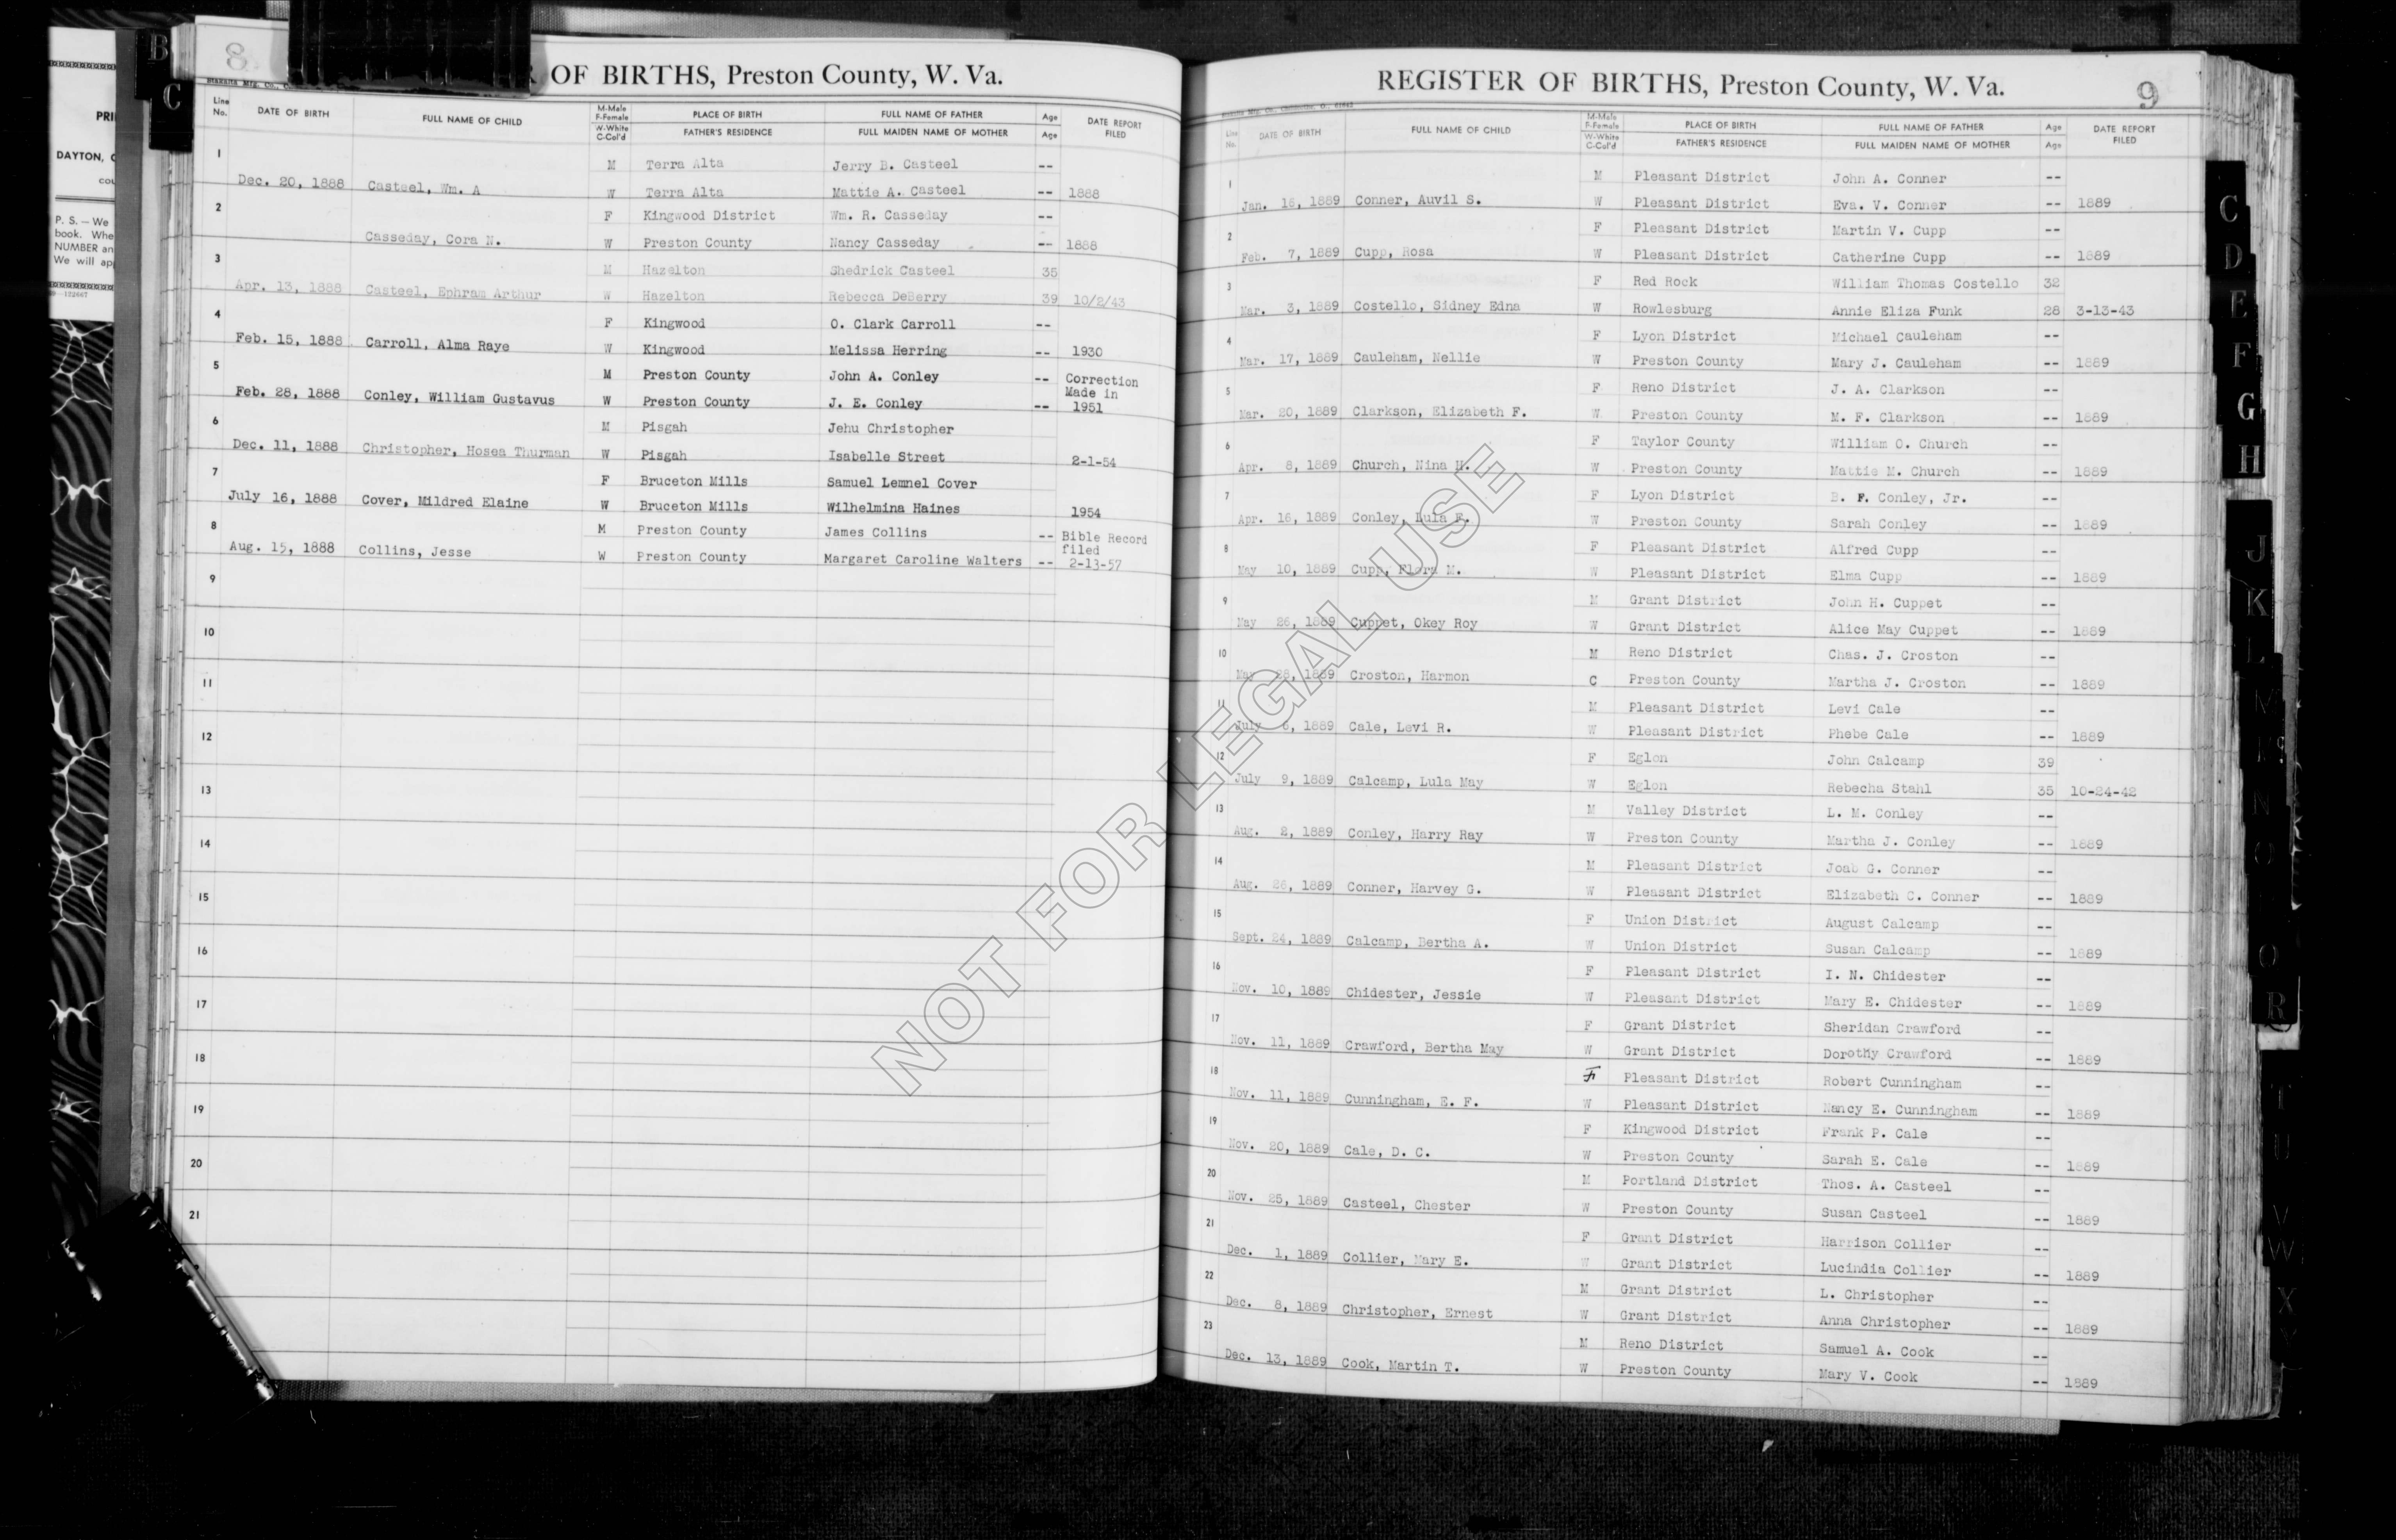 8
OF BIRTHS, Preston County, W. Va.
Line No. DATE OF BIRTH FULL NAME OF CHILD M-Male F-Female W-White C-Col'd PLACE OF BIRTH FATHER'S RESIDENCE FULL NAME OF FATHER FULL MAIDEN NAME OF MOTHER Age Age DATE REPORT FILED
1 M Terra Alta Jerry B. Casteel --
Dec. 20, 1888 Casteel, Wm. A W Terra Alta Mattie A. Casteel -- 1888
2 F Kingwood District Wm. R. Casseday --
Casseday, Cora N. W Preston County Nancy Casseday -- 1888
3 M Hazelton Shedrick Casteel 35
Apr. 13, 1888 Casteel, Ephram Arthur W Hazelton Rebecca DeBerry 39 10/2/43
4 F Kingwood O. Clark Carroll --
Feb. 15, 1888 Carroll, Alma Raye W Kingwood Melissa Herring -- 1930
5 M Preston County John A. Conley -- Correction Made in
Feb. 28, 1888 Conley, William Gustavus W Preston County J. E. Conley -- 1951
6 M Pisgah Jehu Christopher
Dec. 11, 1888 Christopher, Hosea Thurman W Pisgah Isabelle Street 2-1-54
7 F Bruceton Mills Samuel Lemnel Cover
July 16, 1888 Cover, Mildred Elaine W Bruceton Mills Wilhelmina Haines 1954
8 M Preston County James Collins -- Bible Record filed
Aug. 15, 1888 Collins, Jesse W Preston County Margaret Caroline Walters -- 2-13-57
9
10
11
12
13
14
15
16
17
18
19
20
21
REGISTER OF BIRTHS, Preston County, W. Va.
9
Line No. DATE OF BIRTH FULL NAME OF CHILD M-Male F-Female W-White C-Col'd PLACE OF BIRTH FATHER'S RESIDENCE FULL NAME OF FATHER FULL MAIDEN NAME OF MOTHER Age Age DATE REPORT FILED
1 M Pleasant District John A. Conner --
Jan. 16, 1889 Conner, Auvil S. W Pleasant District Eva. V. Conner -- 1889
2 F Pleasant District Martin V. Cupp --
Feb. 7, 1889 Cupp, Rosa W Pleasant District Catherine Cupp -- 1889
3 F Red Rock William Thomas Costello 32
Mar. 3, 1889 Costello, Sidney Edna W Rowlesburg Annie Eliza Funk 28 3-13-43
4 F Lyon District Michael Cauleham --
Mar. 17, 1889 Cauleham, Nellie W Preston County Mary J. Cauleham -- 1889
5 F Reno District J. A. Clarkson --
Mar. 20, 1889 Clarkson, Elizabeth F. W Preston County M. F. Clarkson -- 1889
6 F Taylor County William O. Church --
Apr. 8, 1889 Church, Nina M. W Preston County Mattie M. Church -- 1889
7 F Lyon District B. F. Conley, Jr. --
Apr. 16, 1889 Conley, Lula E. W Preston County Sarah Conley -- 1889
8 F Pleasant District Alfred Cupp --
May 10, 1889 Cupp, Flora M. W Pleasant District Elma Cupp -- 1889
9 M Grant District John H. Cuppet --
May 26, 1889 Cuppet, Okey Roy W Grant District Alice May Cuppet -- 1889
10 M Reno District Chas. J. Croston --
May 28, 1889 Croston, Harmon C Preston County Martha J. Croston -- 1889
11 M Pleasant District Levi Cale --
July 6, 1889 Cale, Levi R. W Pleasant District Phebe Cale -- 1889
12 F Eglon John Calcamp 39
July 9, 1889 Calcamp, Lula May W Eglon Rebecha Stahl 35 10-24-42
13 M Valley District L. M. Conley --
Aug. 2, 1889 Conley, Harry Ray W Preston County Martha J. Conley -- 1889
14 M Pleasant District Joab G. Conner --
Aug. 26, 1889 Conner, Harvey G. W Pleasant District Elizabeth C. Conner -- 1889
15 F Union District August Calcamp --
Sept. 24, 1889 Calcamp, Bertha A. W Union District Susan Calcamp -- 1889
16 F Pleasant District I. N. Chidester --
Nov. 10, 1889 Chidester, Jessie W Pleasant District Mary E. Chidester -- 1889
17 F Grant District Sheridan Crawford --
Nov. 11, 1889 Crawford, Bertha May W Grant District Dorothy Crawford -- 1889
18 F Pleasant District Robert Cunningham --
Nov. 11, 1889 Cunningham, E. F. W Pleasant District Nancy E. Cunningham -- 1889
19 F Kingwood District Frank P. Cale --
Nov. 20, 1889 Cale, D. C. W Preston County Sarah E. Cale -- 1889
20 M Portland District Thos. A. Casteel --
Nov. 25, 1889 Casteel, Chester W Preston County Susan Casteel -- 1889
21 F Grant District Harrison Collier --
Dec. 1, 1889 Collier, Mary E. W Grant District Lucindia Collier -- 1889
22 M Grant District L. Christopher --
Dec. 8, 1889 Christopher, Ernest W Grant District Anna Christopher -- 1889
23 M Reno District Samuel A. Cook --
Dec. 13, 1889 Cook, Martin T. W Preston County Mary V. Cook -- 1889
NOT FOR LEGAL USE
B
C
DAYTON,
P. S. — We
book. Whe
NUMBER an
We will
C
D
E
F
G
H
J
K
L
M
N
O
R
T
U
V
W
X
Y